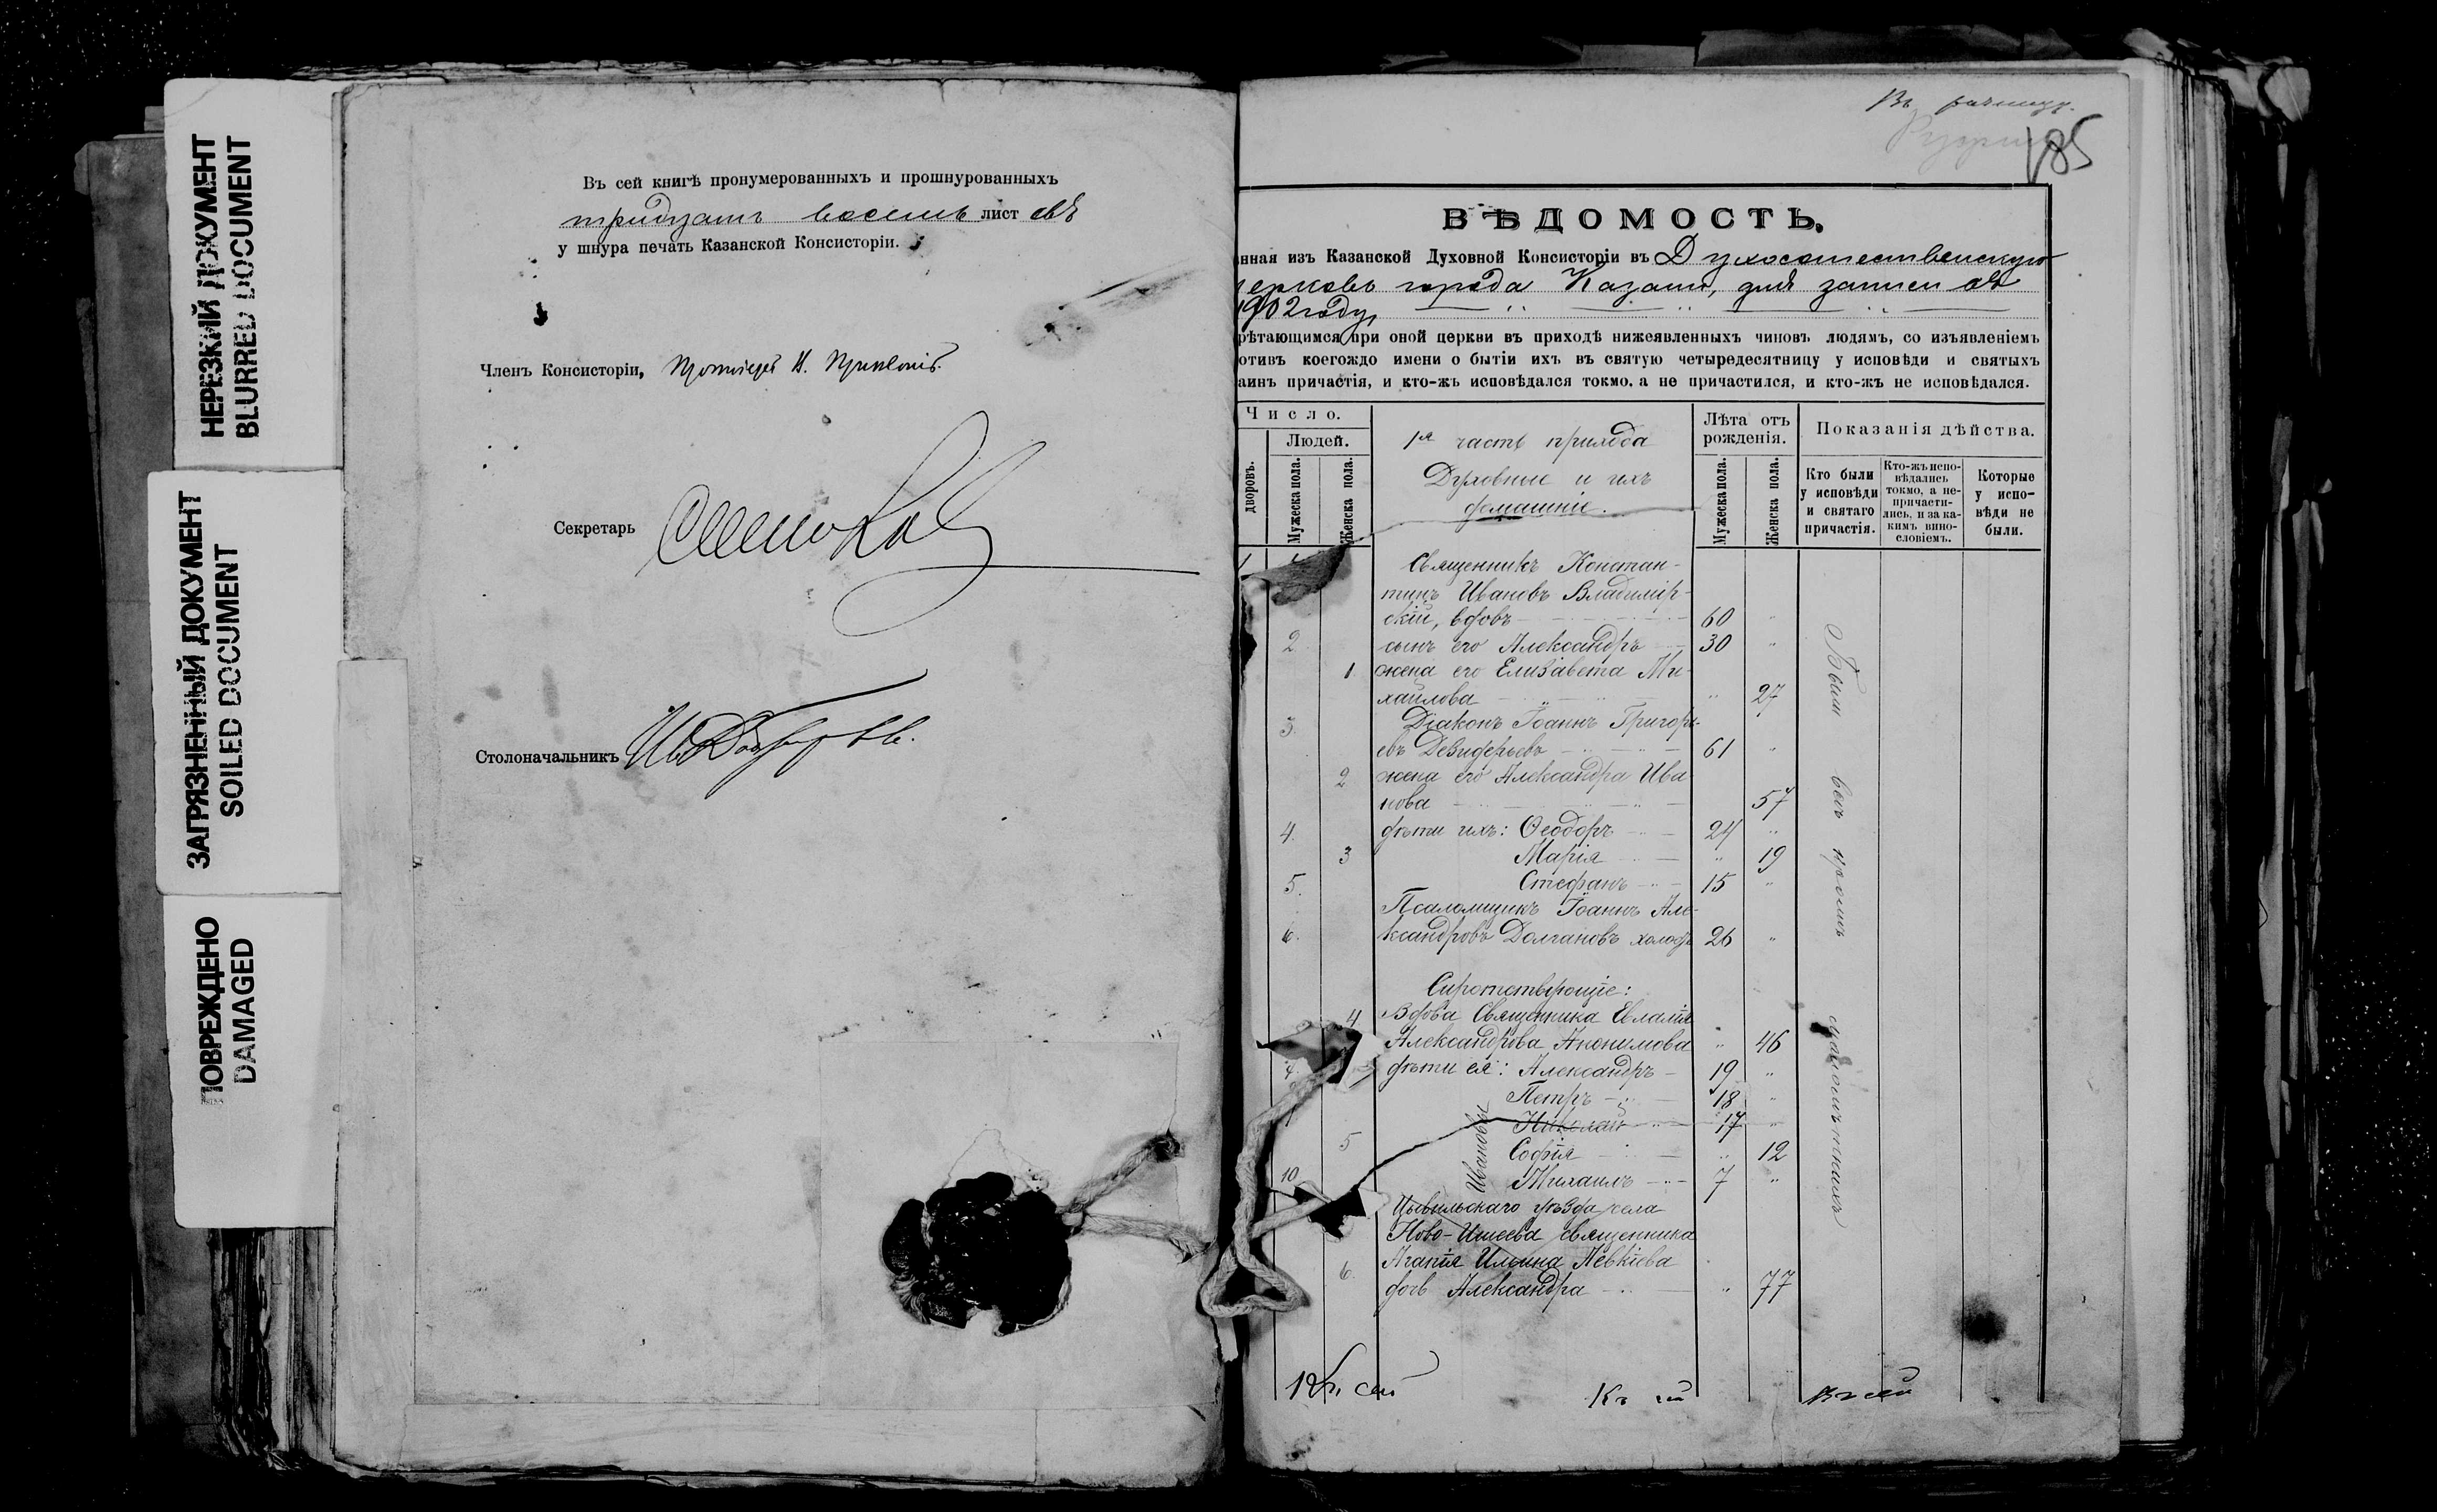 НЕРЕЗКИЙ ДОКУМЕНТ
BLURRED DOCUMENT
ЗАГРЯЗНЕННЫЙ ДОКУМЕНТ
SOILED DOCUMENT
ПОВРЕЖДЕНО
DAMAGED
Въ сей книгѣ пронумерованныхъ и прошнурованныхъ
тридцать восемь лист овъ
у шнура печать Казанской Консисторіи.
Членъ Консисторіи, Протоіерей
Секретарь
Столоначальникъ
Въ
185
ВѢДОМОСТЬ.
нная изъ Казанской Духовной Консисторіи въ Духосошественскую
церковь города Казани, для записи въ
1902 году
рѣтающимся при оной церкви въ приходѣ нижеявленныхъ чиновъ людямъ, со изъявленіемъ
отивъ коегождо имени о бытіи ихъ въ святую четыредесятницу у исповѣди и святыхъ
аинъ причастія, и кто-жъ исповѣдался токмо, а не причастился, и кто-жъ не исповѣдался.
Число.
Людей.
дворовъ.
Мужеска пола.
Женска пола.
1я часть прихода
Духовные и ихъ
домашніе.
Лѣта отъ рожденія.
Мужеска пола.
Женска пола.
Показанія дѣйства.
Кто были у исповѣди и святаго причастія.
Кто-жъ испо-вѣдались токмо, а не-причасти-лись, и за ка-кимъ вино-словіемъ.
Которые у испо-вѣди не были.
Священникъ Констан-
тинъ Ивановъ Владимір-
скій, вдовъ 60
2 сынъ его Александръ 30
1 жена его Елизавета Ми-
хайлова 27
3. Діаконъ Іоаннъ Григорь-
евъ Девидерьевъ 61
2 жена его Александра Ива
нова 57
4. дѣти ихъ: Ѳеодоръ 24
3 Марія 19
5. Стефанъ 15
Псаломщикъ Іоаннъ Але-
6. ксандровъ Долгановъ холостъ 26
Сиротствующіе:
4 Вдова Священника Евлалія
Александрова Акинимова 46
7. дѣти ея: Александръ 19
Петръ 18
Николай 17
5 Софія 12
10 Михаилъ 7
Ивановы
Цывильскаго уѣзда села
Ново-Ишеева священника
Агапія Ильина Левкіева
6. дочь Александра 77
Были всѣ кромѣ малолѣтнихъ